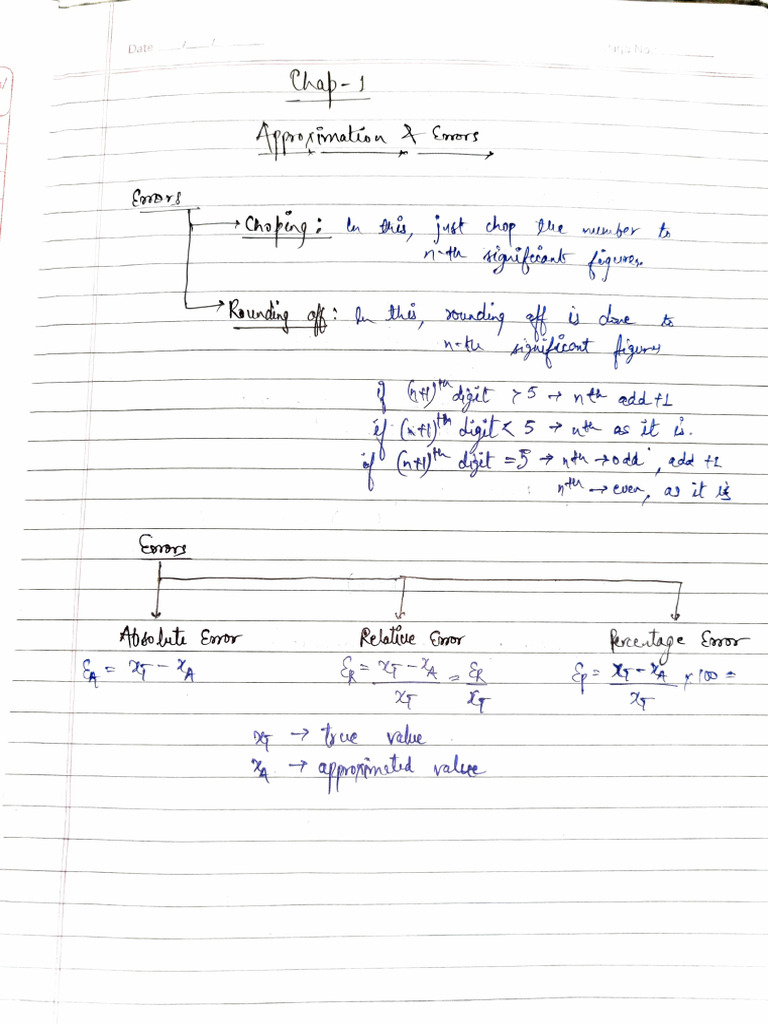 Date ___/___/______
Chap-1
Approximation & Errors
Errors
Choping: In this, just chop the number to
n-th significant figures.
Rounding off: In this, rounding off is done to
n-th significant figures
if (n+1)^th digit > 5 → nth add +1
if (n+1)^th digit < 5 → nth as it is.
if (n+1)^th digit = 5 → nth → odd, add +1
n^th → even, as it is
Errors
Absolute Error Relative Error Percentage Error
E_A = x_T - x_A E_R = (x_T - x_A)/x_T = E_R/x_T E_P = (x_T - x_A)/x_T × 100 =
x_T → true value
x_A → approximeted value